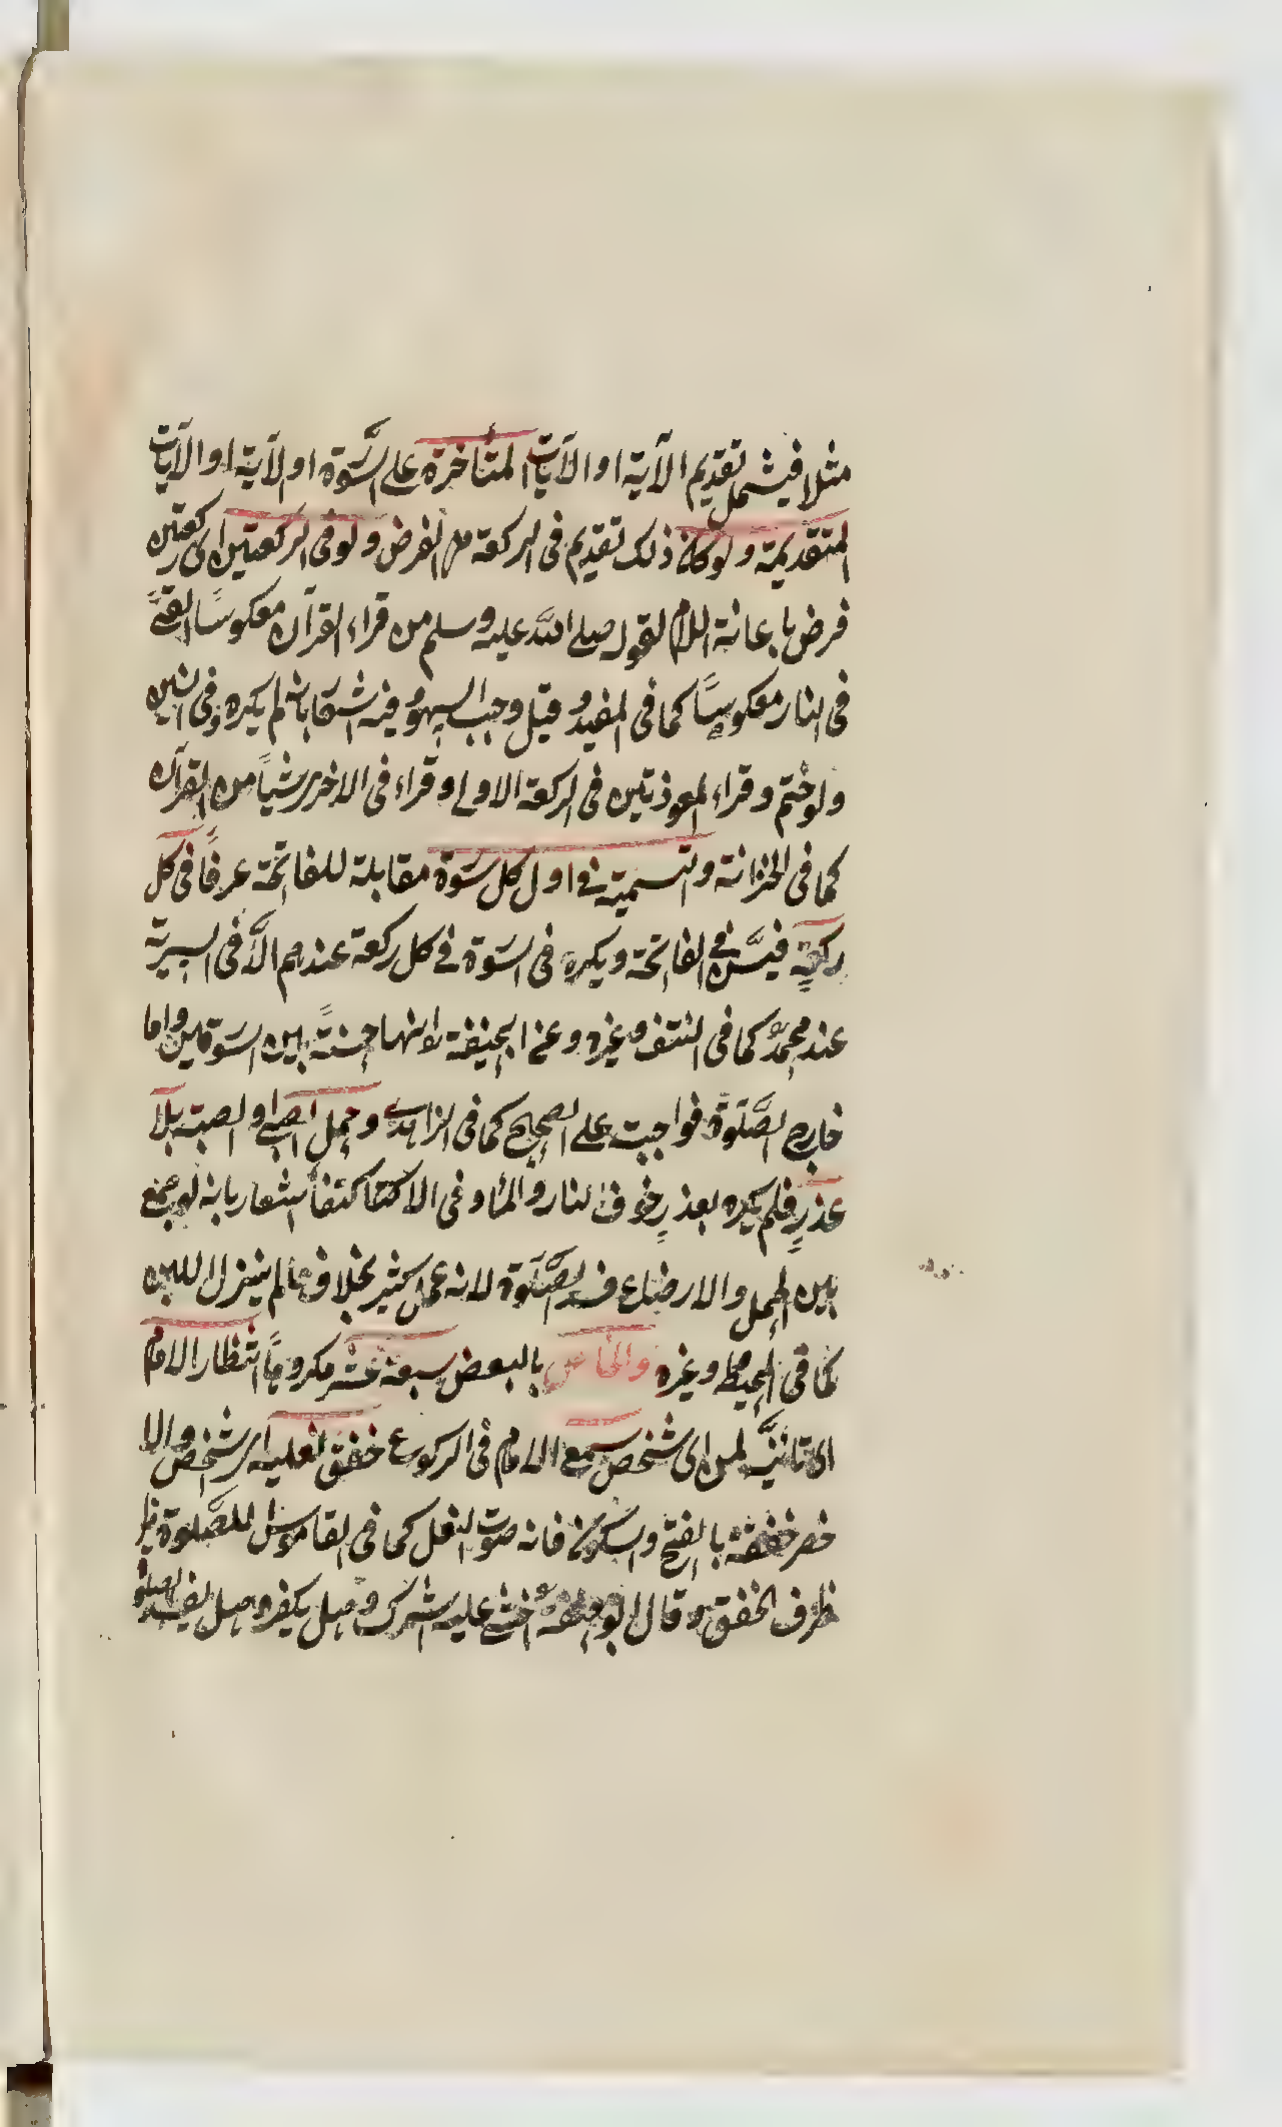 مثلا فيشمل تقديم الآية او الآيات المتأخرة على السّورة او الآية او الآيات
المتقديمة ولو كان ذلك تقديم فى الركعة من الفرض ولو فى الركعتين اى ركعتين
فرض باعانة اللام لقوله صلى الله عليه وسلم من قراء القرآن معكوسًا القى
فى النار معكوسًا كما فى المفيد وقيل وجب السهو وفيه اشعار بانه لم يكره فى
ولو ختم وقراء المعوذتين فى الركعة الاولى وقراء فى الاخرى شيأً من القرآن
كما فى الخزانة والتسمية فى اول كل سورة مقابلة للفاتحة عرفًا فى كل
ركعة فيسن فى الفاتحة ويكره فى السورة فى كل ركعة عندهم الّا فى السيرية
عند محمد كما فى النتف وغيره وعن ابى حنيفة انها حسنةً بين السورتين واما
خارج الصّلوة فواجبة على الصحيح كما فى الزاهدى وحمل الصبى او الصبية بلا
عذرٍ فلم يكره بعذرٍ خوف النار والماء وفى الاكتفا اشعار بانه لو جمع
بين الحمل والارضاع فسد الصّلوة لانه عمل كثير بخلاف ما لم ينزل اللبن
كما فى المحيط وغيره والخاص بالبعض سبعة عشر مكروهًا انتظار الامام
اى تانيّه لمن اى شخص سمع الامام فى الركوع خفق نعليه اى شخص والا
خصر خفقة بالفتح والسكون فانه صوت النعل كما فى القاموس للصّلوة
ظرف الخفق وقال ابو حنيفة اخشى عليه الشرك وقيل يكفر وقيل يفسد الصلوة